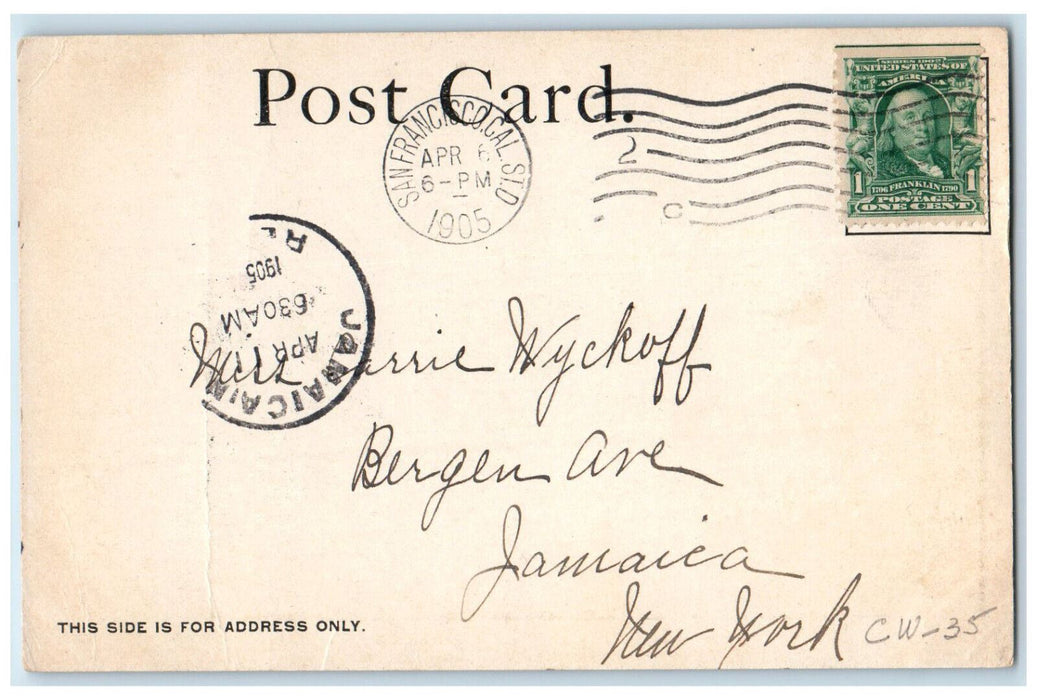 Post Card.
SAN FRANCISCO, CAL. STA. D
APR 6
6-PM
1905
2
C
SERIES 1902
UNITED STATES OF
AMERICA
1 1
1706 FRANKLIN 1790
POSTAGE
ONE CENT
JAMAICA, N
APR 11
630 AM
1905
RE
Miss Carrie Wyckoff
Bergen Ave
Jamaica
New York
CW-35
THIS SIDE IS FOR ADDRESS ONLY.